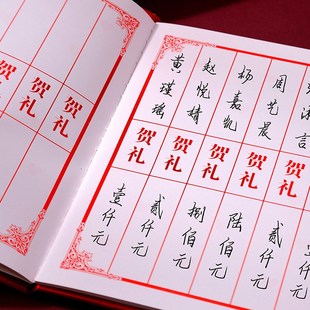 涵言 贺礼 贰仟元
周艺晨 贺礼 陆佰元
杨嘉凯 贺礼 捌佰元
赵悦婧 贺礼 贰仟元
黄瑾瑶 贺礼 壹仟元
贺礼
贺礼
贺礼